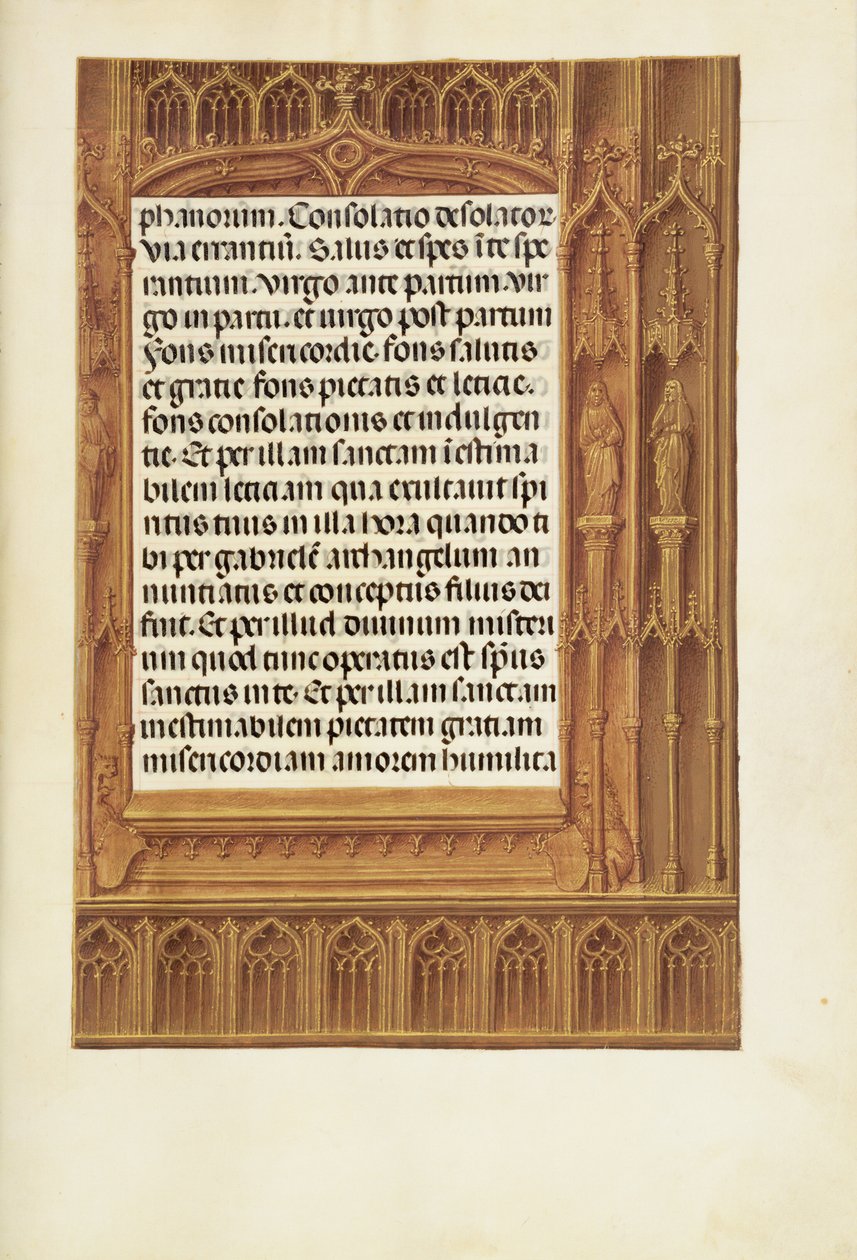 phanorum. Consolatio desolator
via errantiū. Salus et spes ī te spe
rantium. virgo ante partum. vir
go in partu. et uirgo post partum
Fons misericordie. fons salutis
et gratie fons pietatis et leticie.
fons consolationis et indulgen
tie. Et per illam sanctam īestima
bilem leticiam qua exultauit spi
ritus tuus in illa hora quando ti
bi per gabrielē archangelum an
nuntiatus et conceptus filius dei
fuit. Et per illud diuinum misteri
um quod tunc operatus est sp̄us
sanctus in te. Et per illam sanctam
inestimabilem pietatem gratiam
misericordiam amorem humilita